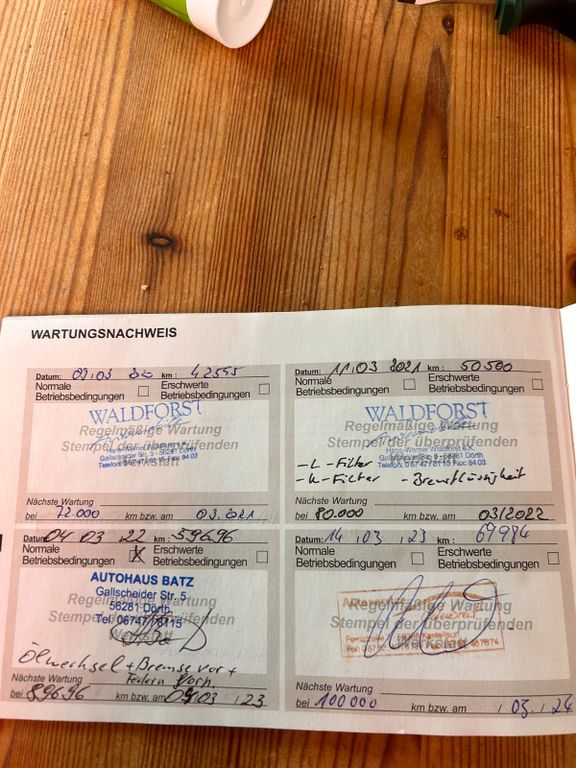 WARTUNGSNACHWEIS
Datum: 09.03 km: 42555
Normale Betriebsbedingungen
Erschwerte Betriebsbedingungen
WALDFORST
Regelmäßige Wartung
Stempel der überprüfenden
Gallscheider Str. 5 - 56281 Dörth
Nächste Wartung
bei 72.000 km bzw. am 03.2021
Datum: 11.03 2021 km: 50500
Normale Betriebsbedingungen
Erschwerte Betriebsbedingungen
WALDFORST
Regelmäßige Wartung
Stempel der überprüfenden
Hans-Werner Waldforst e.K.
Gallscheider Str. 5 - 56281 Dörth
Telefon: 0 67 47 / 81 15 Fax: 84 03
- L - Filter
- K - Filter - Bremsflüssigkeit
Nächste Wartung
bei 80.000 km bzw. am 03/2022
Datum: 04 03 .22 km: 59696
Normale Betriebsbedingungen
Erschwerte Betriebsbedingungen
AUTOHAUS BATZ
Gallscheider Str. 5
56281 Dörth
Tel. 06747 / 8115
Regelmäßige Wartung
Stempel der überprüfenden
Werkstatt
Ölwechsel + Bremse vor +
Federn Vorn.
Nächste Wartung
bei 89696 km bzw. am 03 .23
Datum: 14 .03 .23 km: 69984
Normale Betriebsbedingungen
Erschwerte Betriebsbedingungen
Regelmäßige Wartung
Stempel der überprüfenden
Werkstatt
Nächste Wartung
bei 100 000 km bzw. am .03 .24